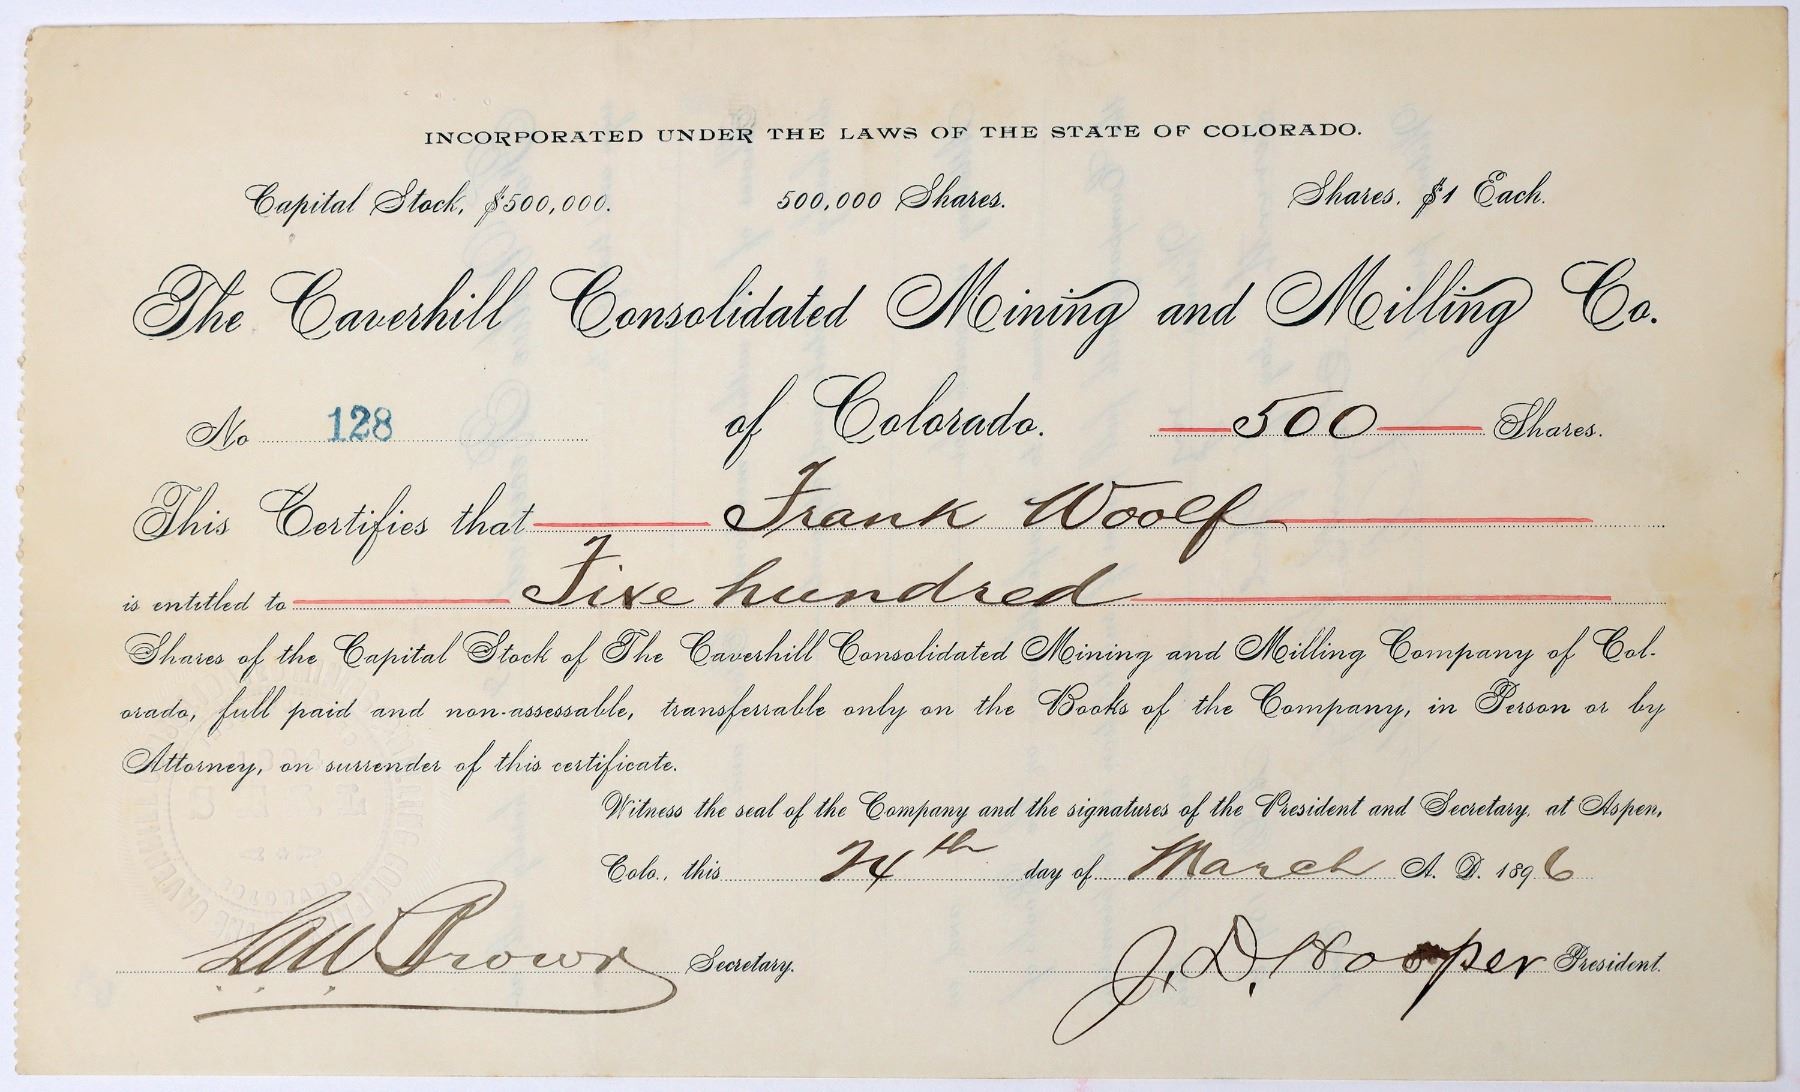 INCORPORATED UNDER THE LAWS OF THE STATE OF COLORADO.
Capital Stock, $500,000. 500,000 Shares. Shares, $1 Each.
The Caverhill Consolidated Mining and Milling Co.
No 128 of Colorado. 500 Shares.
This Certifies that Frank Woolf
is entitled to Five hundred
Shares of the Capital Stock of The Caverhill Consolidated Mining and Milling Company of Col-
orado, full paid and non-assessable, transferrable only on the Books of the Company, in Person or by
Attorney, on surrender of this certificate.
Witness the seal of the Company and the signatures of the President and Secretary, at Aspen,
Colo., this 24th day of March A. D. 1896
Brown Secretary. J. D. Hooper President.